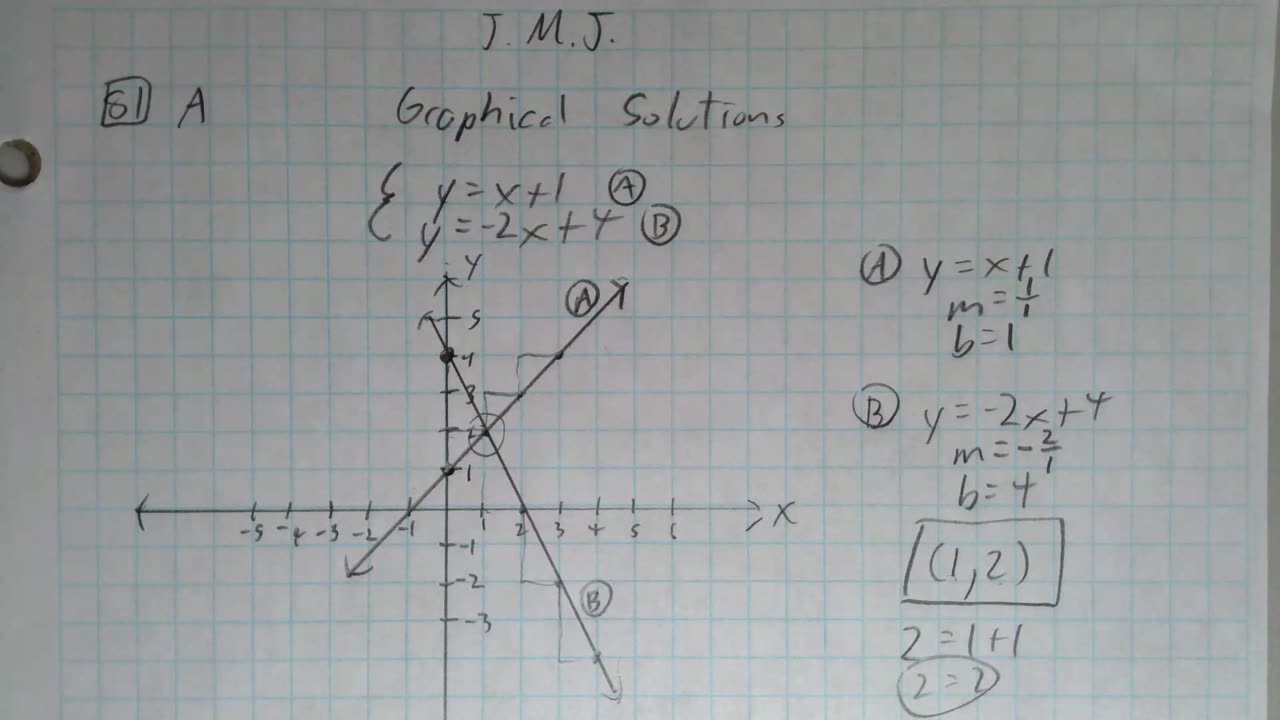 J.M.J.
81 A Graphical Solutions
{ y = x+1 Ⓐ
y = -2x+4 Ⓑ
y
Ⓐ
5
4
3
2
1
-5 -4 -3 -2 -1 1 2 3 4 5 6 x
-1
-2
-3
Ⓑ
Ⓐ y = x+1
m = 1/1
b = 1
Ⓑ y = -2x+4
m = -2/1
b = 4
(1,2)
2 = 1+1
2 = 2